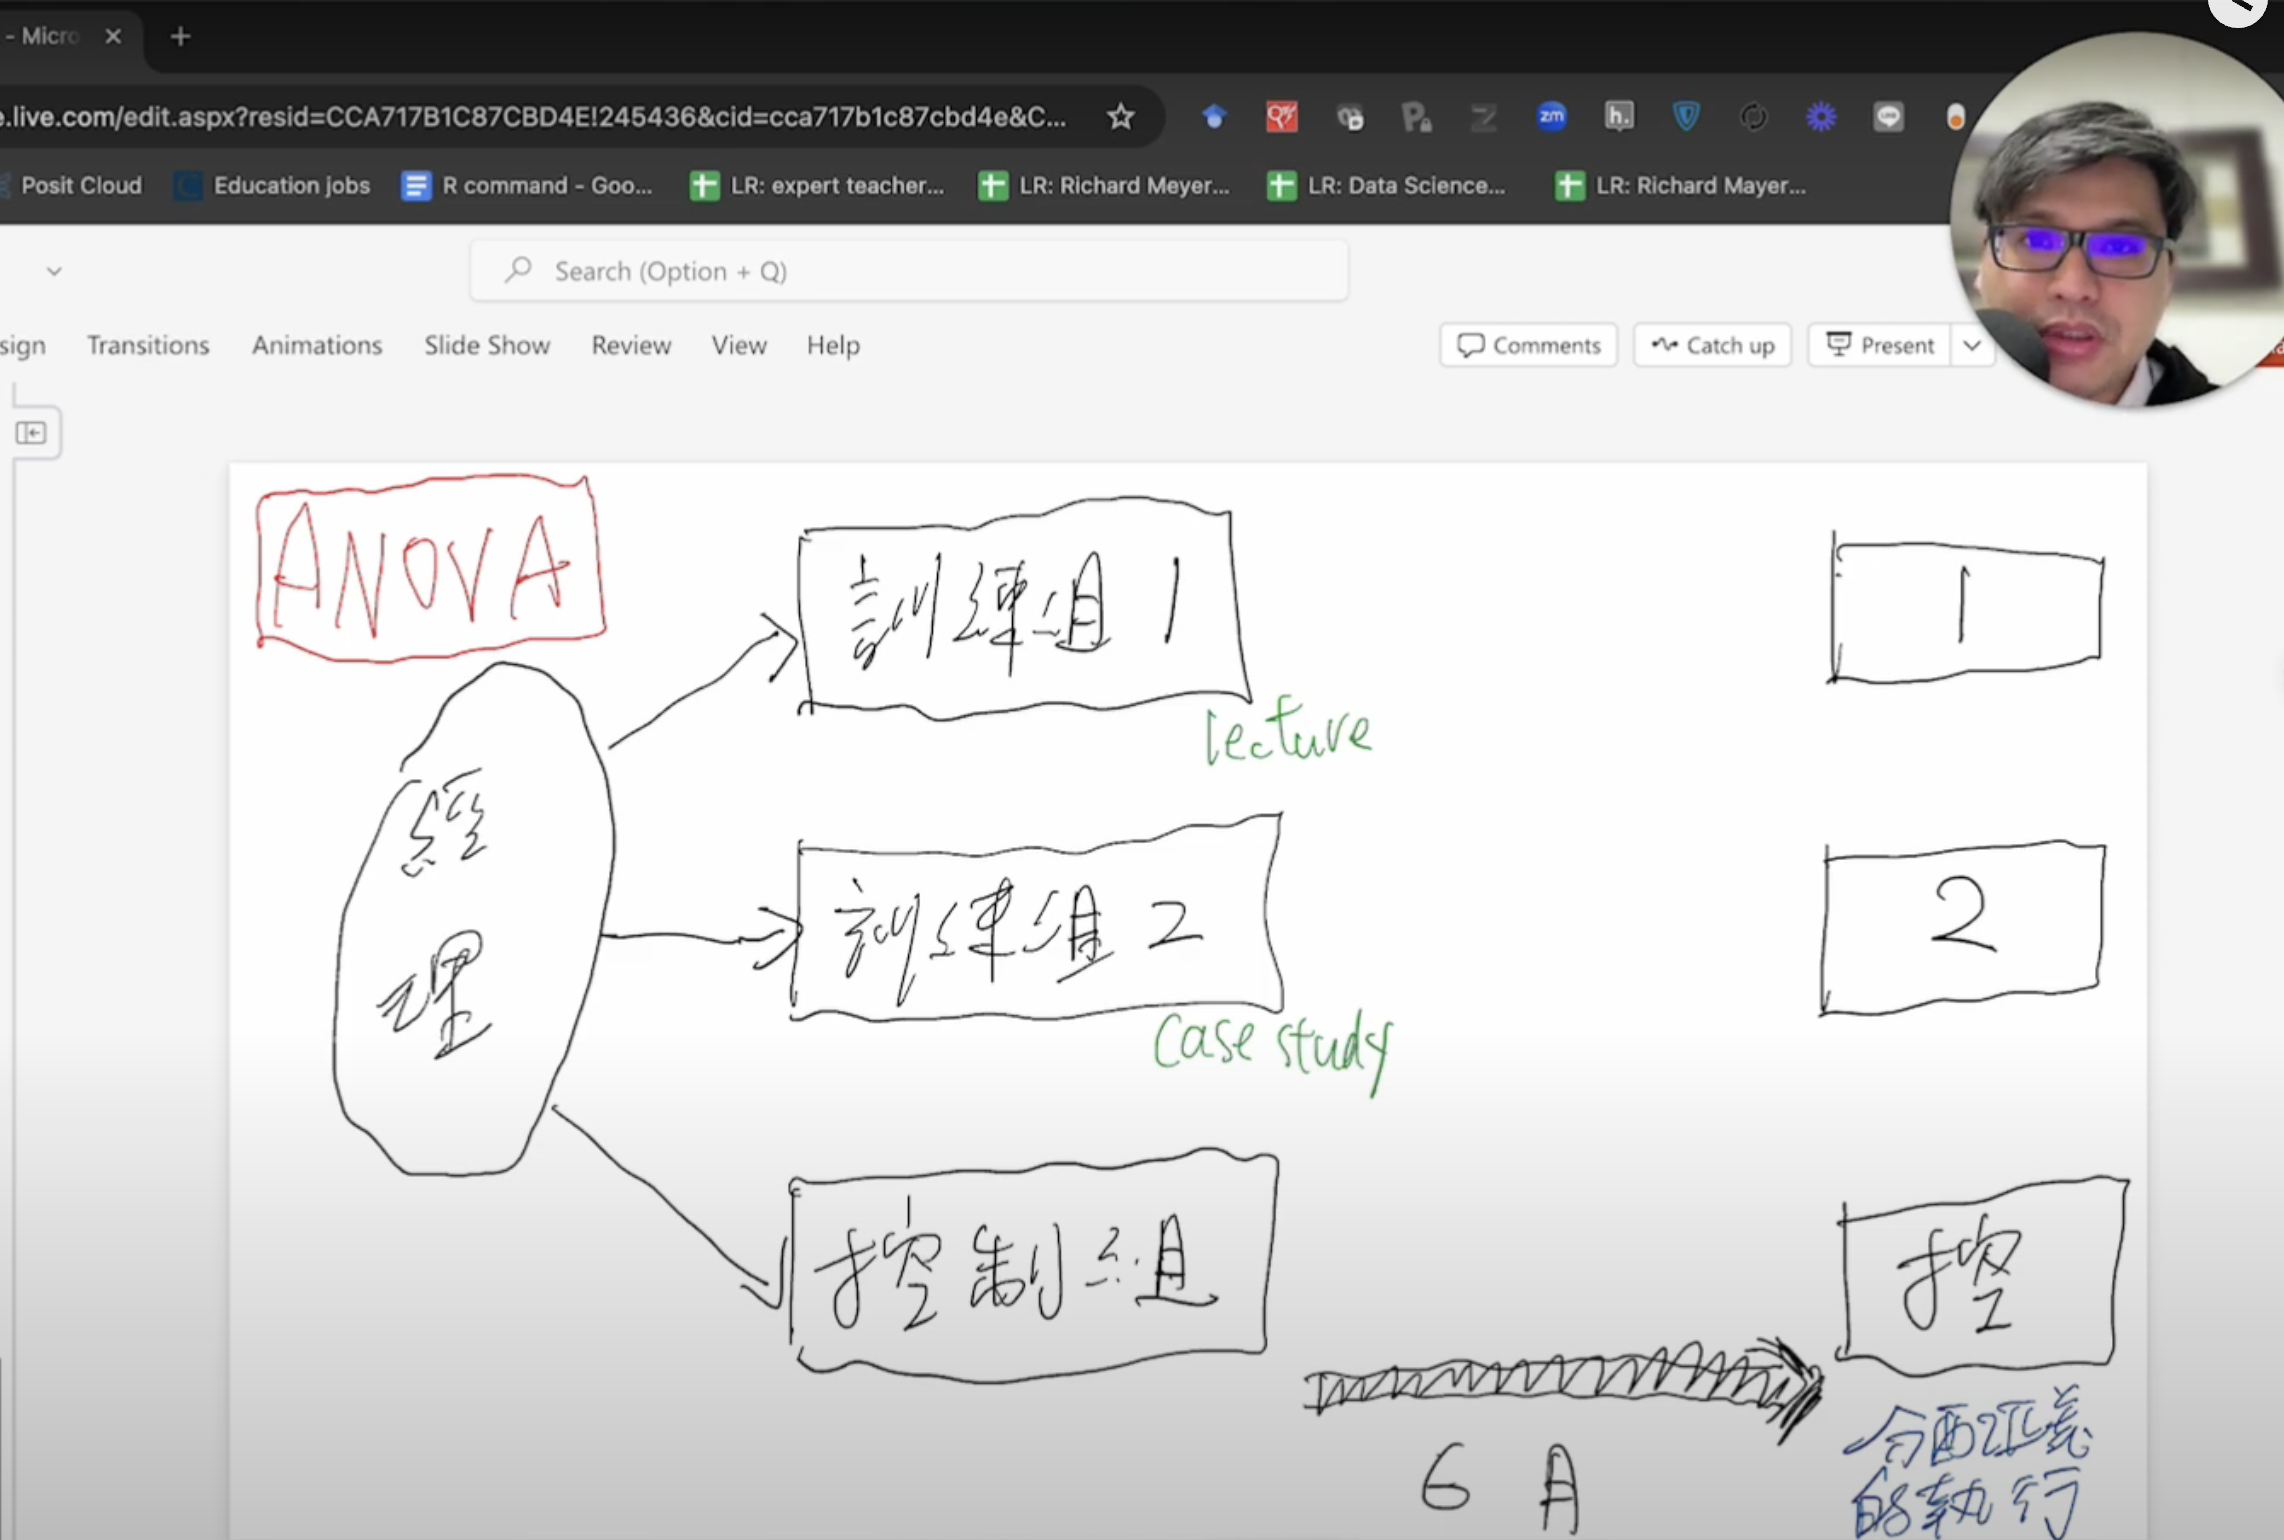 - Micro
e.live.com/edit.aspx?resid=CCA717B1C87CBD4E!245436&cid=cca717b1c87cbd4e&C...
zm
h.
Posit Cloud
Education jobs
R command - Goo...
LR: expert teacher...
LR: Richard Meyer...
LR: Data Science...
LR: Richard Mayer...
Search (Option + Q)
sign
Transitions
Animations
Slide Show
Review
View
Help
Comments
Catch up
Present
ANOVA
經
理
訓練組 1
lecture
1
訓練組 2
Case study
2
控制組
控
6 月
分配正義
的執行